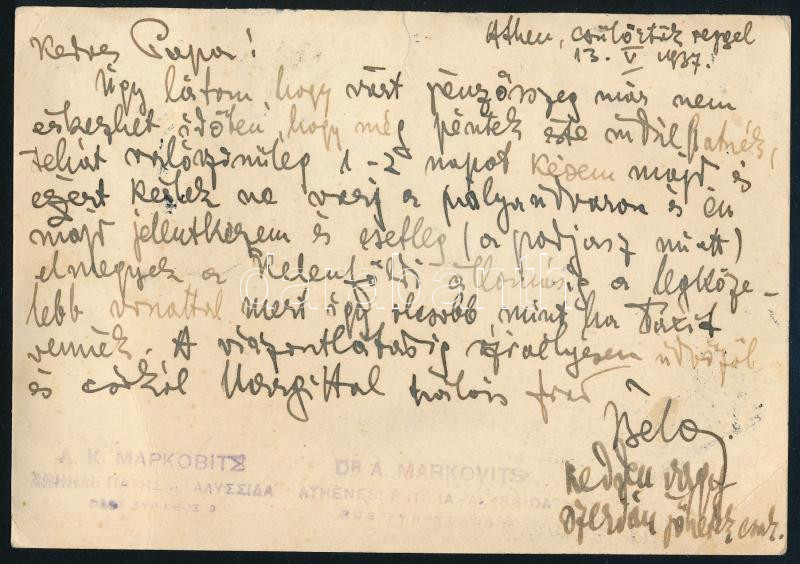 Athen, csütörtök reggel
13. V 1937.
Kedves Papa!
Úgy látom, hogy várt pénzösszeg már nem
érkezhet időben, hogy még péntek este
tehát valószínűleg 1-2 napot késem majd és
ezért kérlek ne várj a pályaudvaron és én
majd jelentkezem és esetleg (a podjasz miatt)
elmegyek a Kelenföldi állomásig a legköze-
lebb vonattal mert úgy olcsóbb, mint ha Taxit
vennék. A viszontlátásig szívélyesen üdvözöl
és csókol Margittal hálás fiad
Béla.
kedden vagy
szerdán jövek csak.
darabanth
A. K. ΜΑΡΚΟΒΙΤΣ
DR A. MARKOVITS
ΑΛΥΣΣΙΔΑ
ATHÈNES
RUE